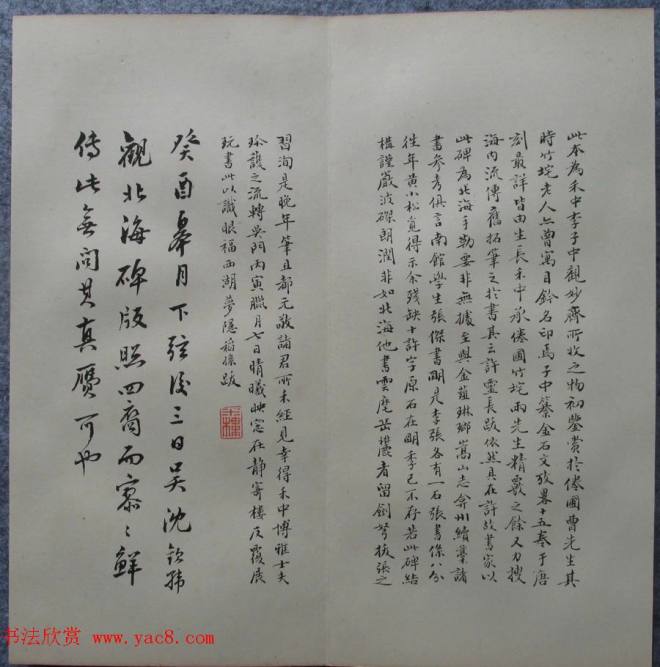 此本為禾中李子中觀妙齋所收之物初鑒賞於倦圃曹先生其
時竹垞老人亦曾寓目鈐名印焉子中纂金石文攷畧十五卷于唐
刻最詳皆由生長禾中承倦圃竹垞兩先生精嚴之餘又力搜
海內流傳舊拓筆之於書其云許靈長跋依然具在許故書家以
此碑為北海手勒要非無據至與金薤琳瑯嵩山志弇州續藁諸
書參考俱言南館學生張傑書則是李張各有一石張書係八分
往年黃小松覓得示余殘缺十許字原石在明季已不存若此碑結
構謹嚴波磔朗潤非如北海他書雲麾岳麓者留劍弩拔張之
習洵是晚年筆且都元敬諸君所未經見幸得禾中博雅士夫
珍護之流轉吴門丙寅臘月七日晴曦映窓在静寄樓反覆展
玩書此以識眼福西湖夢隱稻孫跋
癸酉皋月下弦後三日吴沈欽韩
觀北海碑版照四裔而寥々鮮
傳此無問其真贋可也
书法欣赏 www.yac8.com